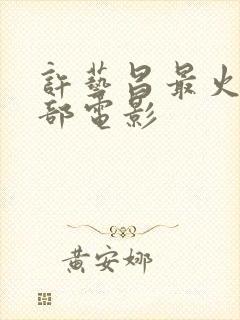 許藝昌最火
部電影
黃安娜